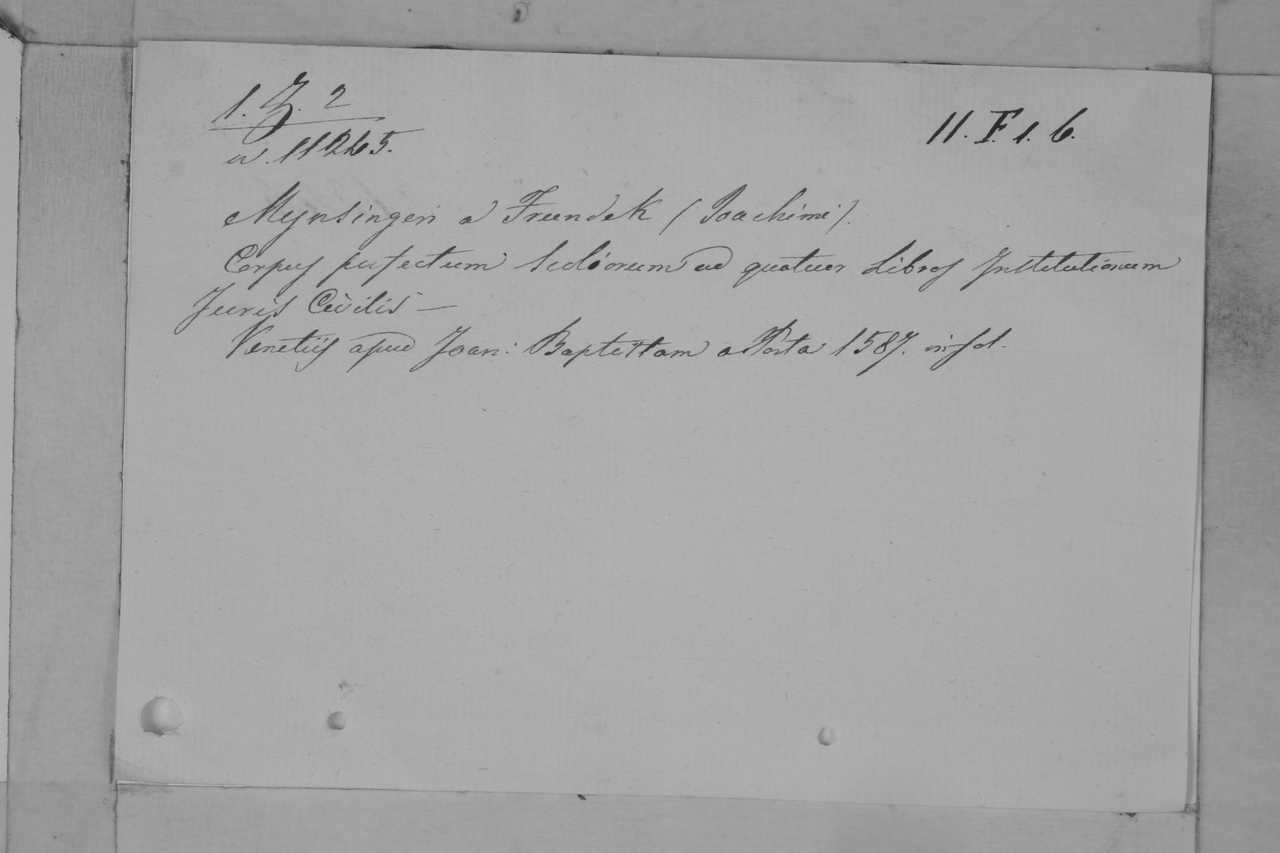 1. Z. 2
11. F. 1. 6.
a. 11265.
Mynsingeri a Freendek (Joachimi).
Corpus perfectum Scoliorum ad quatuor Libros Institutionum
Juris Civilis —
Venetiis apud Joan: Baptistam a Porta 1587. in fol.